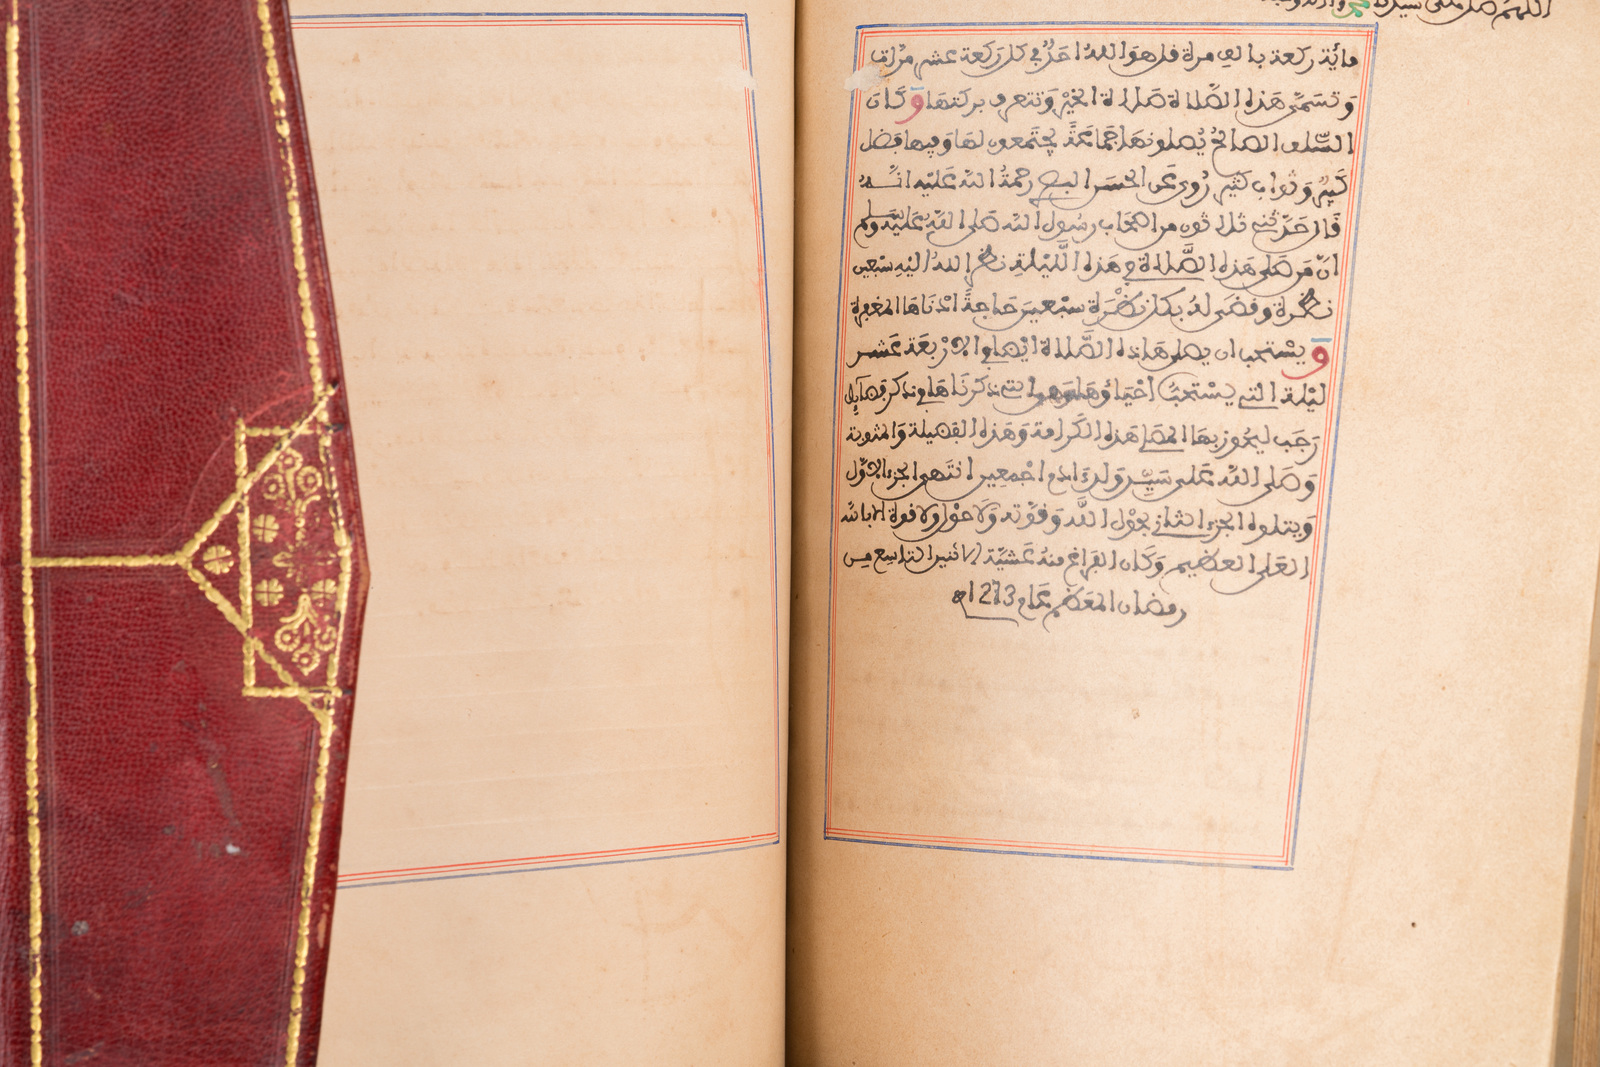 اللهم صل على سيدنا محمد وآله وصحبه
مائة ركعة بالف مرة قل هو الله احد في كل ركعة عشر مرات
وتسمى هذه الصلاة صلاة الخير وتتعرف بركتها وكان
السلف الصالح يصلونها جماعة يجتمعون لها وفيها فضل
كبير وثواب كثير روى عن الحسن البصري رحمة الله عليه انه
قال حدثني ثلاثون من اصحاب رسول الله صلى الله عليه وسلم
ان من صلى هذه الصلاة في هذه الليلة نظر الله اليه سبعين
نظرة وقضى له بكل نظرة سبعين حاجة ادناها المغفرة
ويستحب ان يصلو هاذه الصلاة ايضا في الاربعة عشر
ليلة التي يستحب احياؤها وهي التي ذكرناها في ذكر فضايل
رجب ليحوز بها المصلي هذه الكرامة وهذه الفضيلة والمثوبة
وصلى الله على سيد ولد ادم اجمعين انتهى الجزء الاول
ويتلوه الجزء الثاني بحول الله وقوته ولا حول ولا قوة الا بالله
العلي العظيم وكان الفراغ منه عشية الاثنين التاسع من
رمضان المعظم عام 1273ه